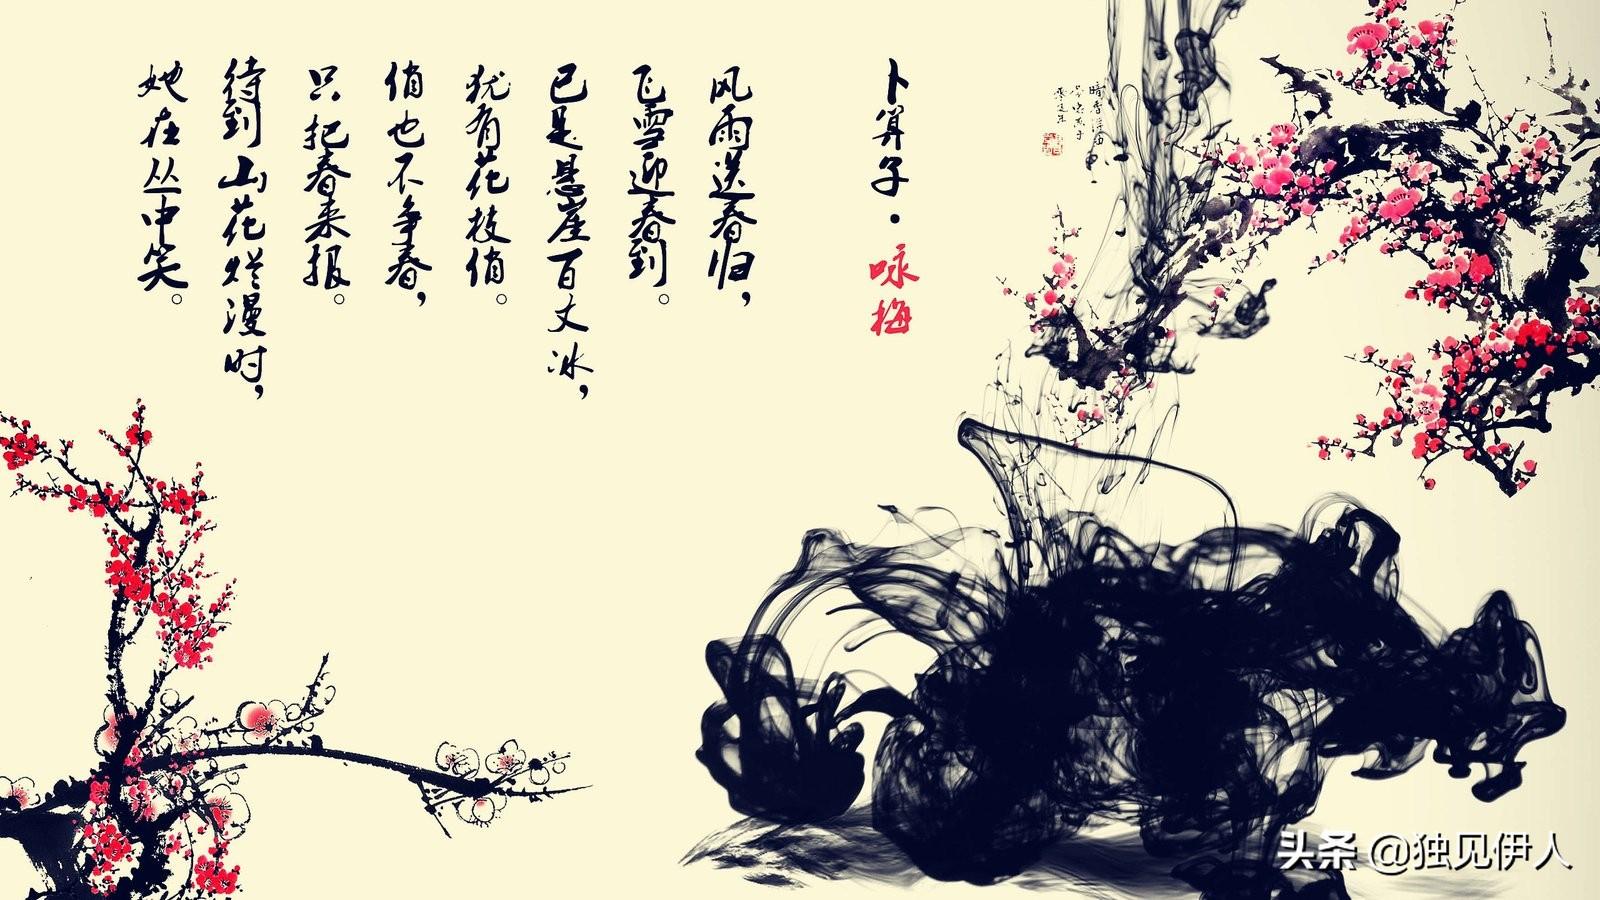 卜算子·咏梅
风雨送春归，
飞雪迎春到。
已是悬崖百丈冰，
犹有花枝俏。
俏也不争春，
只把春来报。
待到山花烂漫时，
她在丛中笑。
头条 @独见伊人